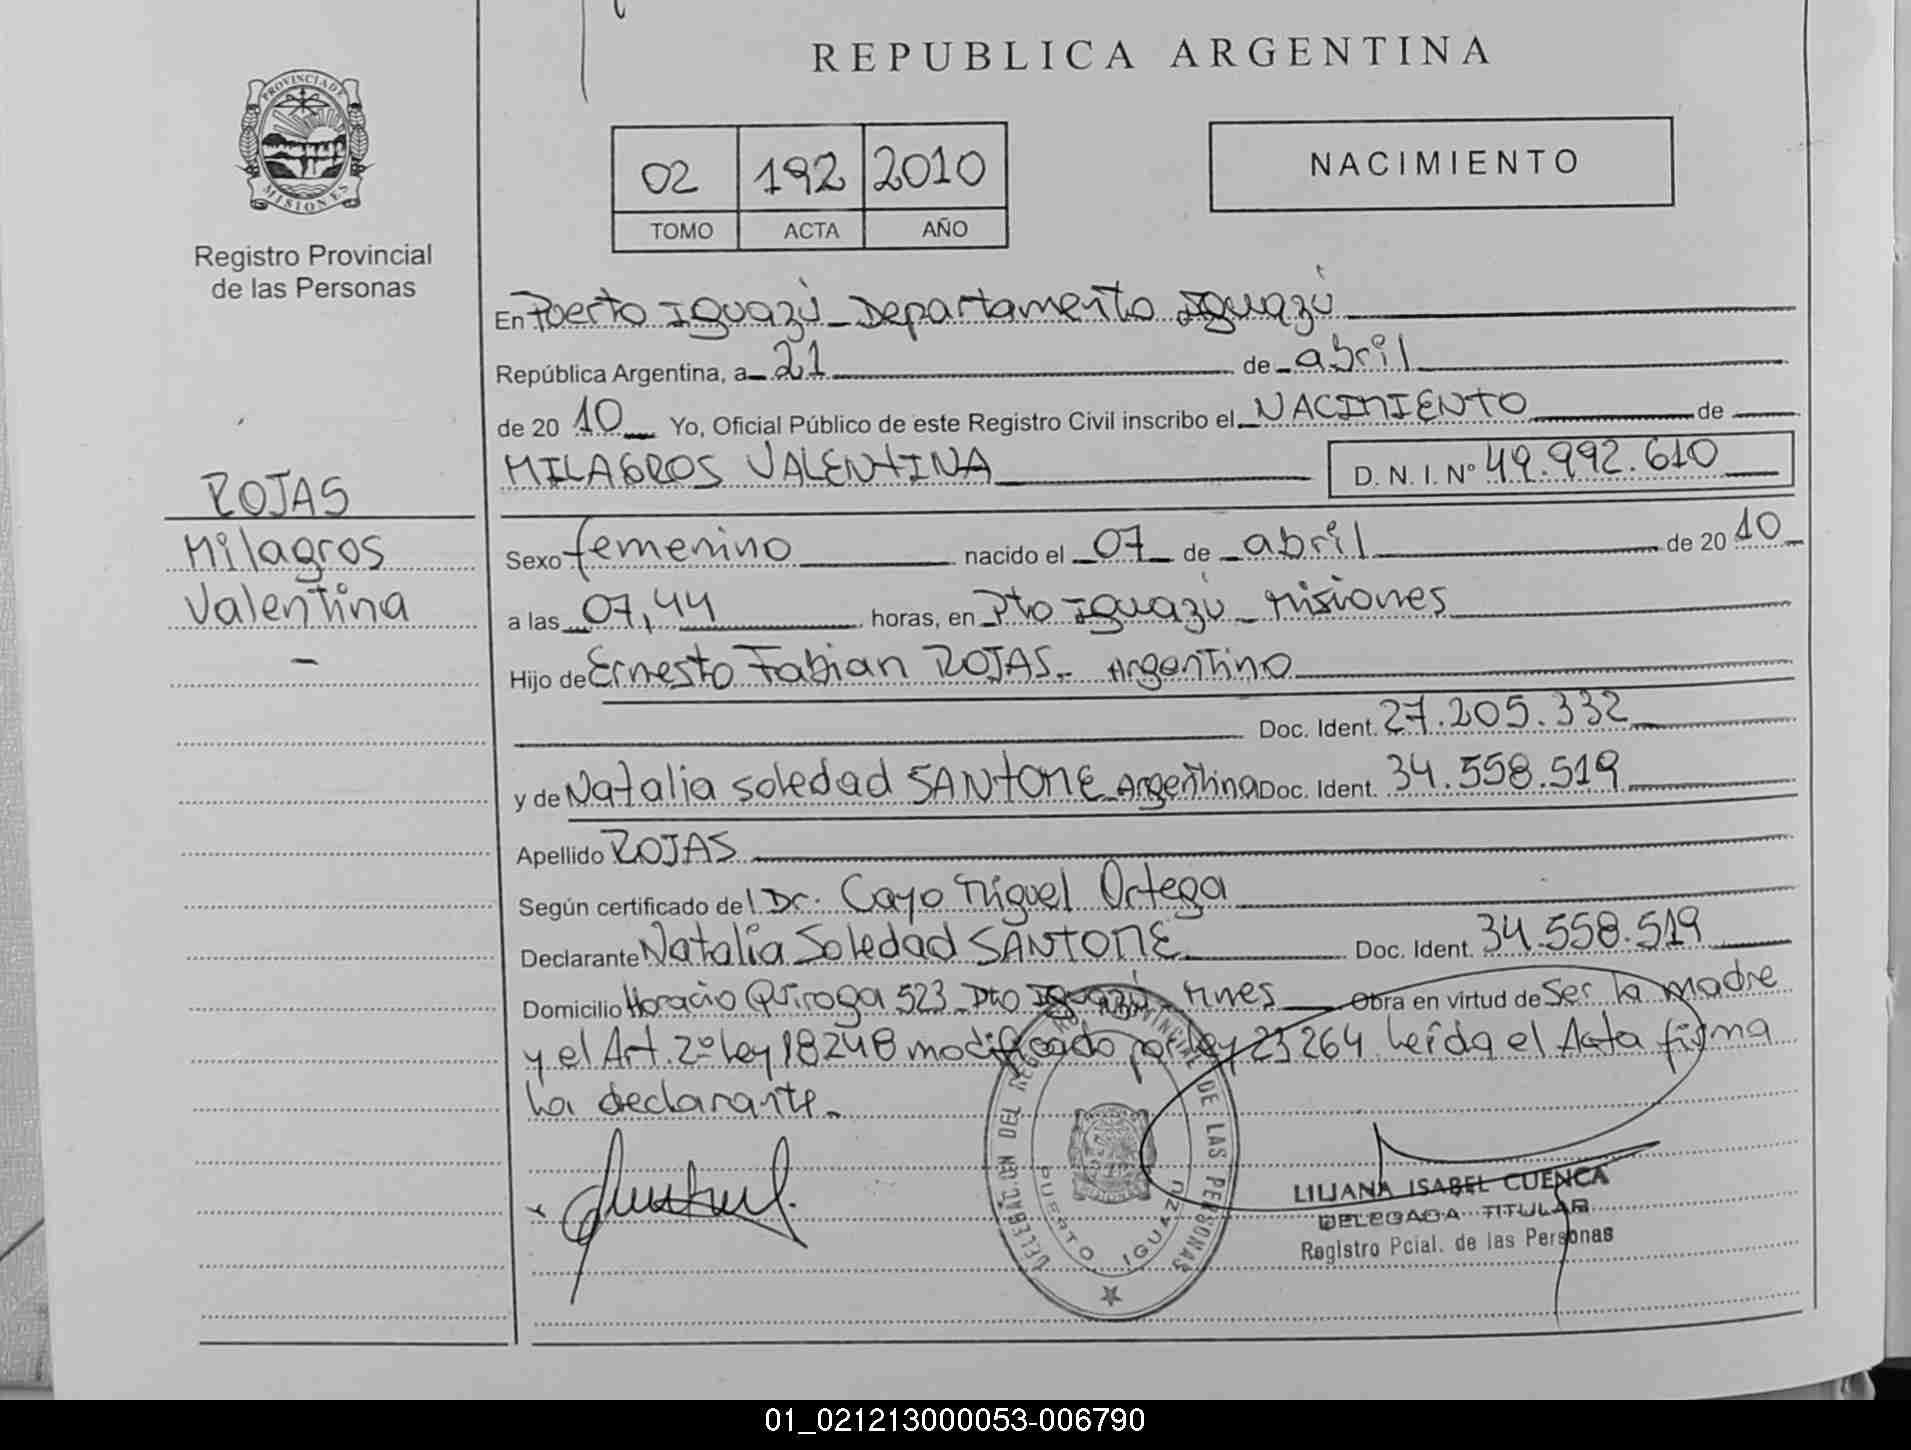 REPUBLICA ARGENTINA
PROVINCIA DE
MISIONES
Registro Provincial
de las Personas
02 192 2010
TOMO ACTA AÑO
NACIMIENTO
En Puerto Iguazú _ Departamento Iguazú
República Argentina, a 21 de abril
de 20 10 Yo, Oficial Público de este Registro Civil inscribo el NACIMIENTO de
MILAGROS VALENTINA D. N. I. Nº 49.992.610
ROJAS
Milagros
Valentina
Sexo femenino nacido el 07 de abril de 20 10
a las 07,44 horas, en Pto Iguazú _ Misiones
Hijo de Ernesto Fabian ROJAS _ Argentino
Doc. Ident. 27.205.332
y de Natalia Soledad SANTONE _ Argentina Doc. Ident. 34.558.519
Apellido ROJAS
Según certificado del Dr. Cayo Miguel Ortega
Declarante Natalia Soledad SANTONE Doc. Ident. 34.558.519
Domicilio Horacio Quiroga 523 _ Pto Iguazú _ Mnes Obra en virtud de ser la madre
y el Art. 2º Ley 18248 modificado por ley 23264 Leída el Acta firma
la declarante.
DELEGACION DEL REGISTRO PROVINCIAL DE LAS PERSONAS
PUERTO IGUAZU
LILIANA ISABEL CUENCA
DELEGADA TITULAR
Registro Pcial. de las Personas
01_021213000053-006790